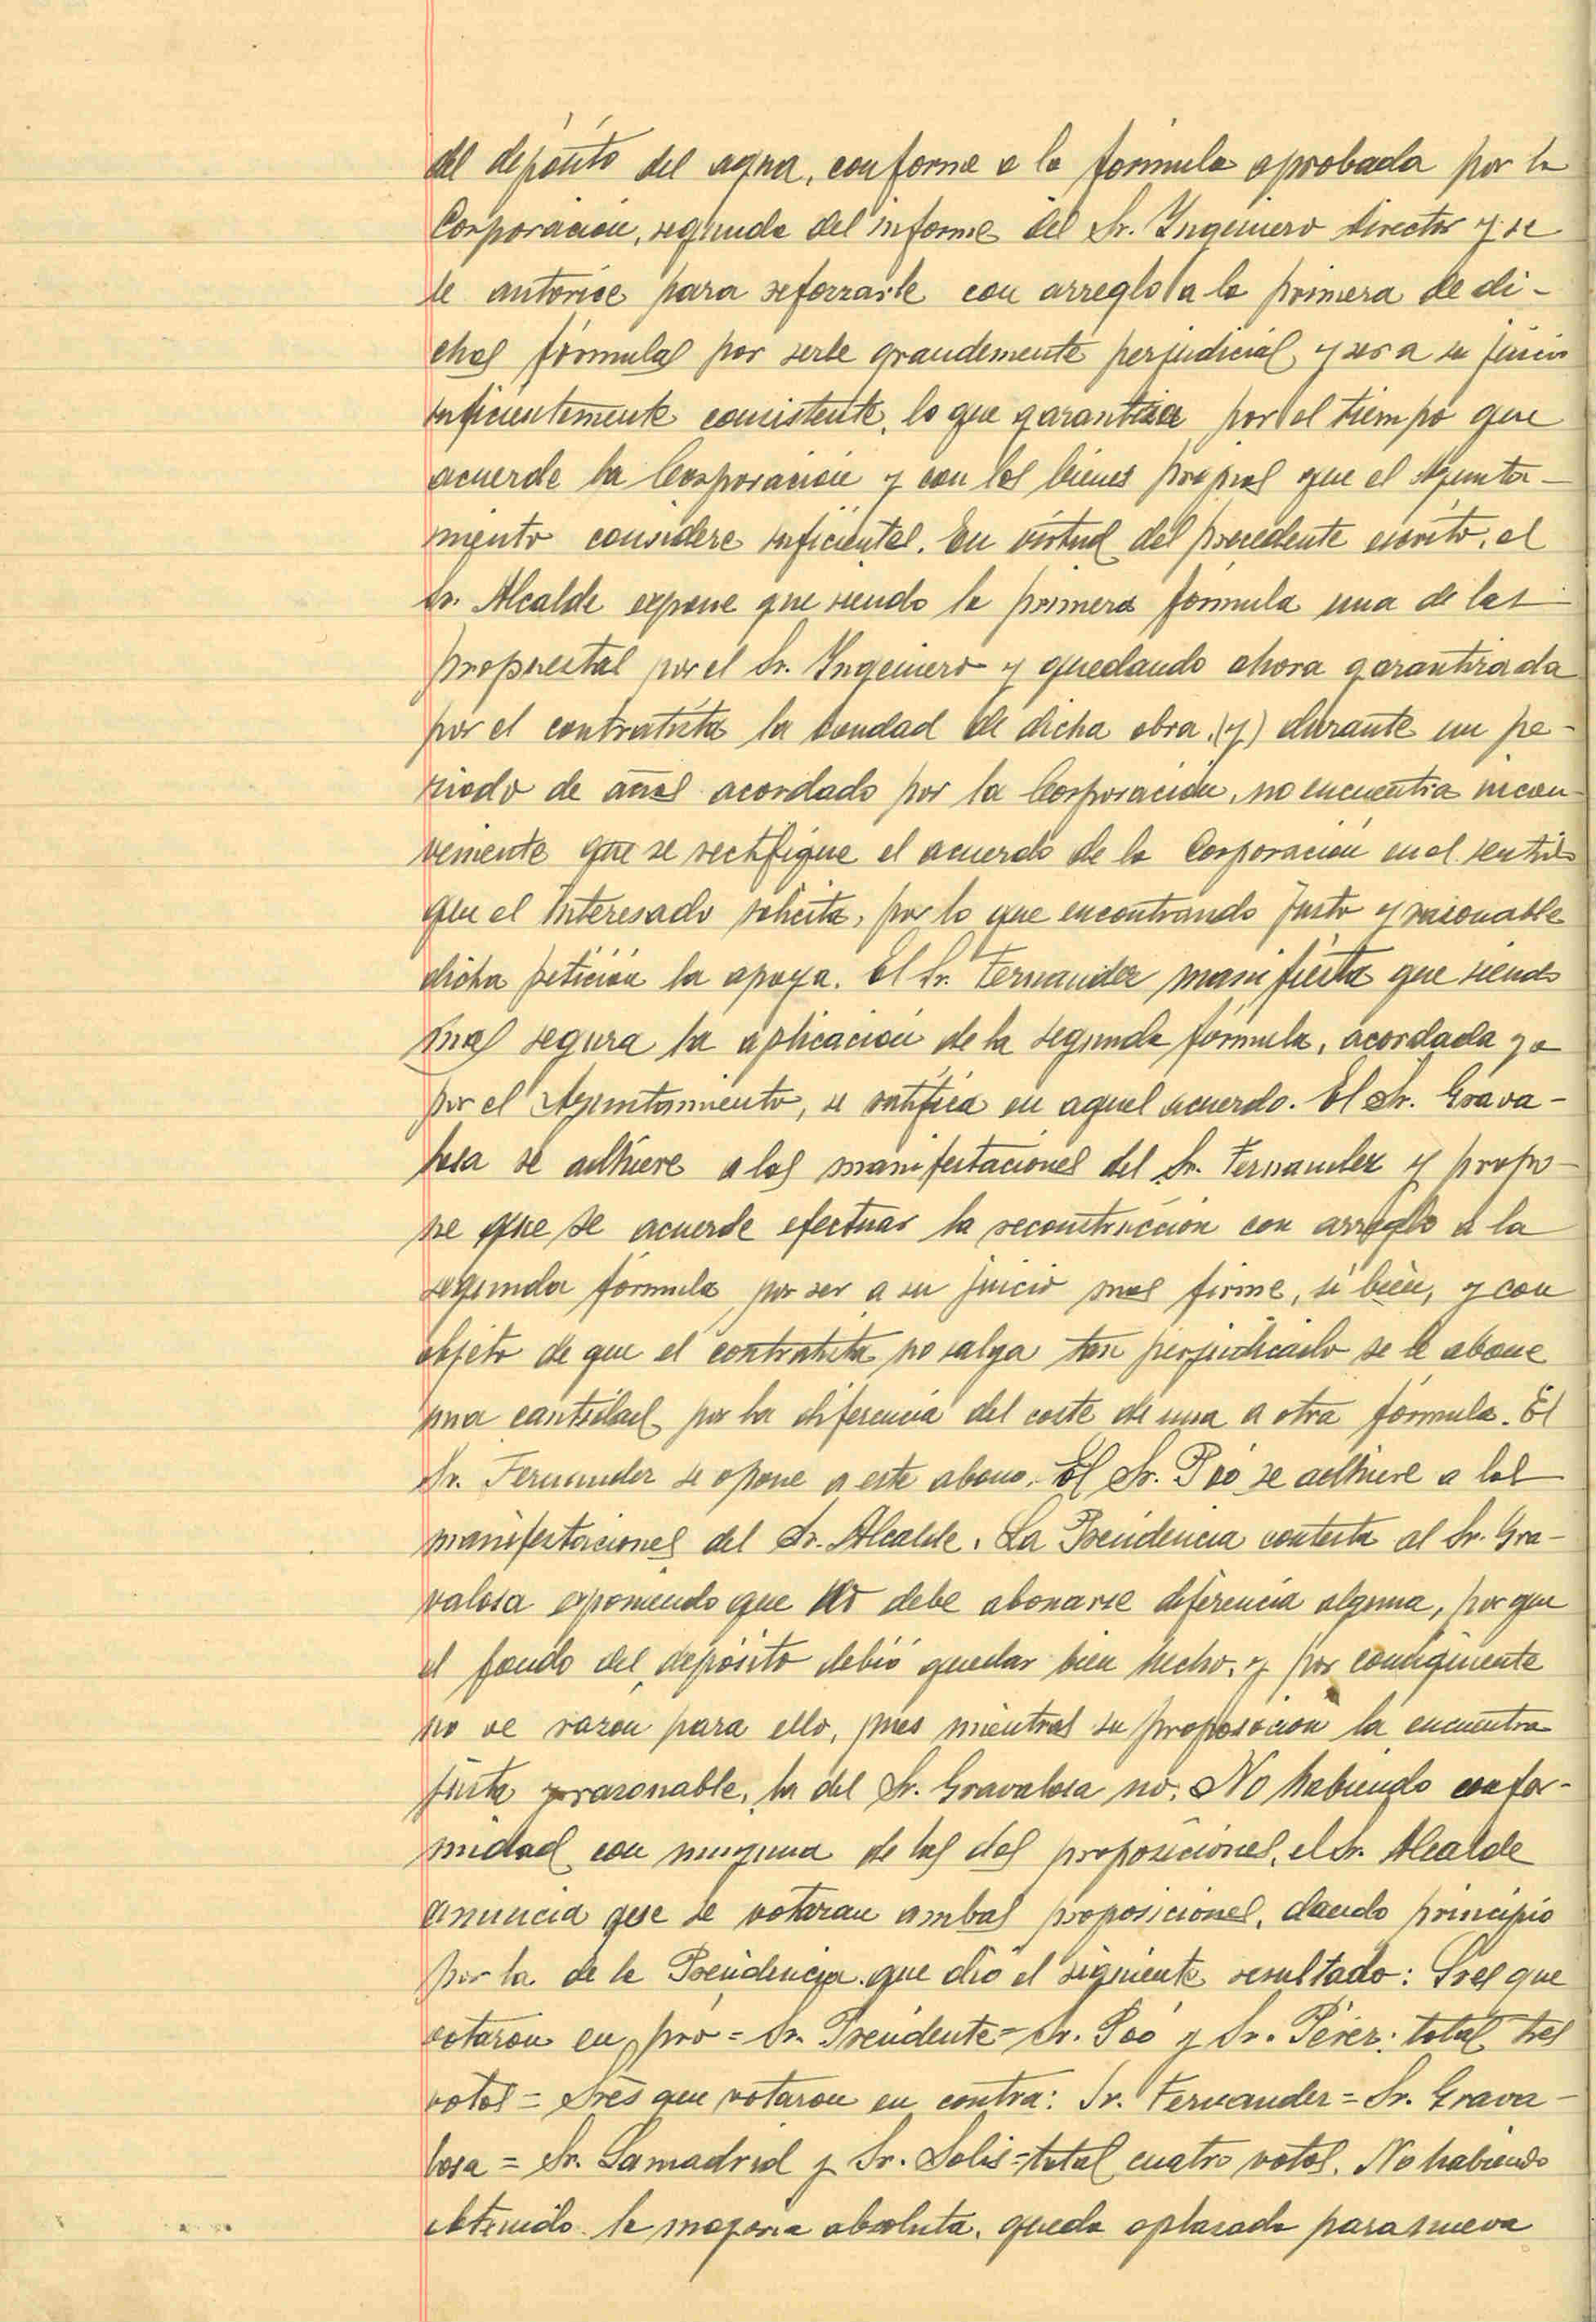 del depósito del agua, conforme a la fórmula aprobada por la
Corporación, segunda del informe del Sr. Ingeniero Director y se
le autorice para reforzarle con arreglo a la primera de di-
chas fórmulas por serle grandemente perjudicial y ser a su juicio
suficientemente consistente, lo que garantiza por el tiempo que
acuerde la Corporación y con los bienes propios que el Ayunta-
miento considere suficientes. En virtud del precedente escrito, el
Sr. Alcalde expone que siendo la primera fórmula una de las
propuestas por el Sr. Ingeniero y quedando ahora garantizada
por el contratista la bondad de dicha obra, (y) durante un pe-
riodo de años acordado por la Corporación, no encuentra incon-
veniente que se rectifique el acuerdo de la Corporación en el sentido
que el interesado solicita, por lo que encontrando justo y razonable
dicha petición la apoya. El Sr. Fernandez manifiesta que siendo
mas segura la aplicación de la segunda fórmula, acordada ya
por el Ayuntamiento, se ratifica en aquel acuerdo. El Sr. Grava-
losa se adhiere a las manifestaciones del Sr. Fernandez y propo-
ne que se acuerde efectuar la reconstrucción con arreglo a la
segunda fórmula por ser a su juicio mas firme, si bien, y con
objeto de que el contratista no salga tan perjudicado se le abone
una cantidad por la diferencia del coste de una a otra fórmula. El
Sr. Fernandez se opone a este abono. El Sr. Póo se adhiere a las
manifestaciones del Sr. Alcalde. La Presidencia contesta al Sr. Gra-
valosa exponiendo que no debe abonarse diferencia alguna, por que
el fondo del depósito debió quedar bien hecho, y por consiguiente
no ve razón para ello, pues mientras su proposición la encuentra
justa y razonable, la del Sr. Gravalosa no. No habiendo confor-
midad con ninguna de las dos proposiciones, el Sr. Alcalde
anuncia que se votaran ambas proposiciones, dando principio
por la de la Presidencia que dió el siguiente resultado: Sres que
votaron en pró = Sr. Presidente = Sr. Póo y Sr. Pérez: total tres
votos = Sres que votaron en contra: Sr. Fernander = Sr. Grava-
losa = Sr. Lamadrid y Sr. Solis = total cuatro votos. No habiendo
obtenido la mayoria absoluta, queda aplazada para nueva